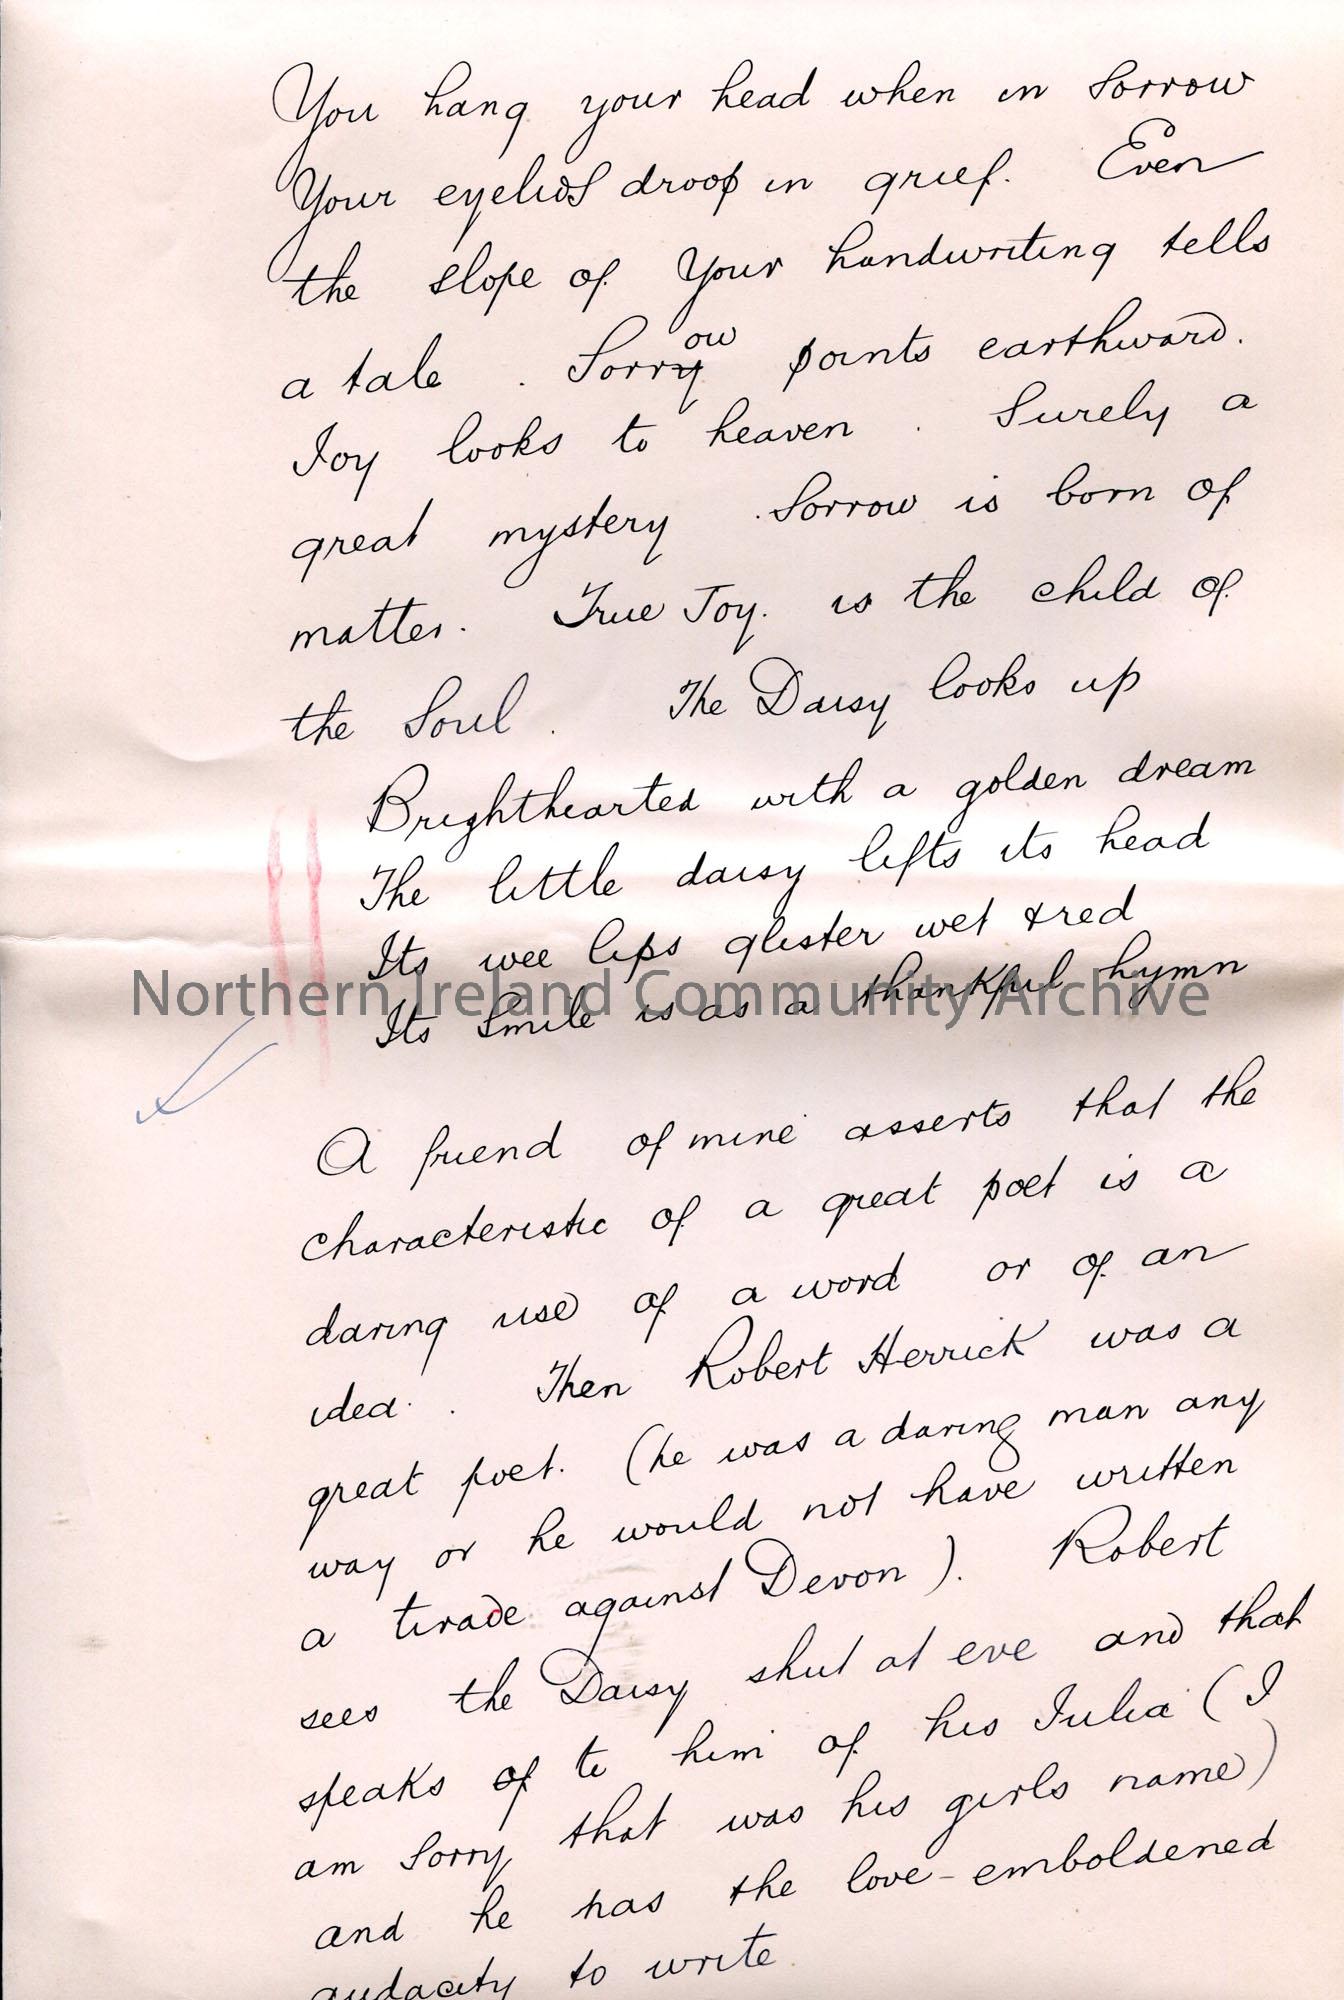 You hang your head when in sorrow
Your eyelids droop in grief. Even
the slope of your handwriting tells
a tale . Sorry ow points earthward.
Joy looks to heaven . Surely a
great mystery . Sorrow is born of
matter. True Joy. is the child of
the Soul . The Daisy looks up
Brighthearted with a golden dream
The little daisy lifts its head
Its wee lips glister wet & red
Its smile is as a thankful hymn
Northern Ireland Community Archive
A friend of mine asserts that the
characteristic of a great poet is a
daring use of a word or of an
idea. . Then Robert Herrick was a
great poet. (he was a daring man any
way or he would not have written
a tirade against Devon). Robert
sees the Daisy shut at eve and that
speaks of to him of his Julia (I
am sorry that was his girls name)
and he has the love-emboldened
audacity to write